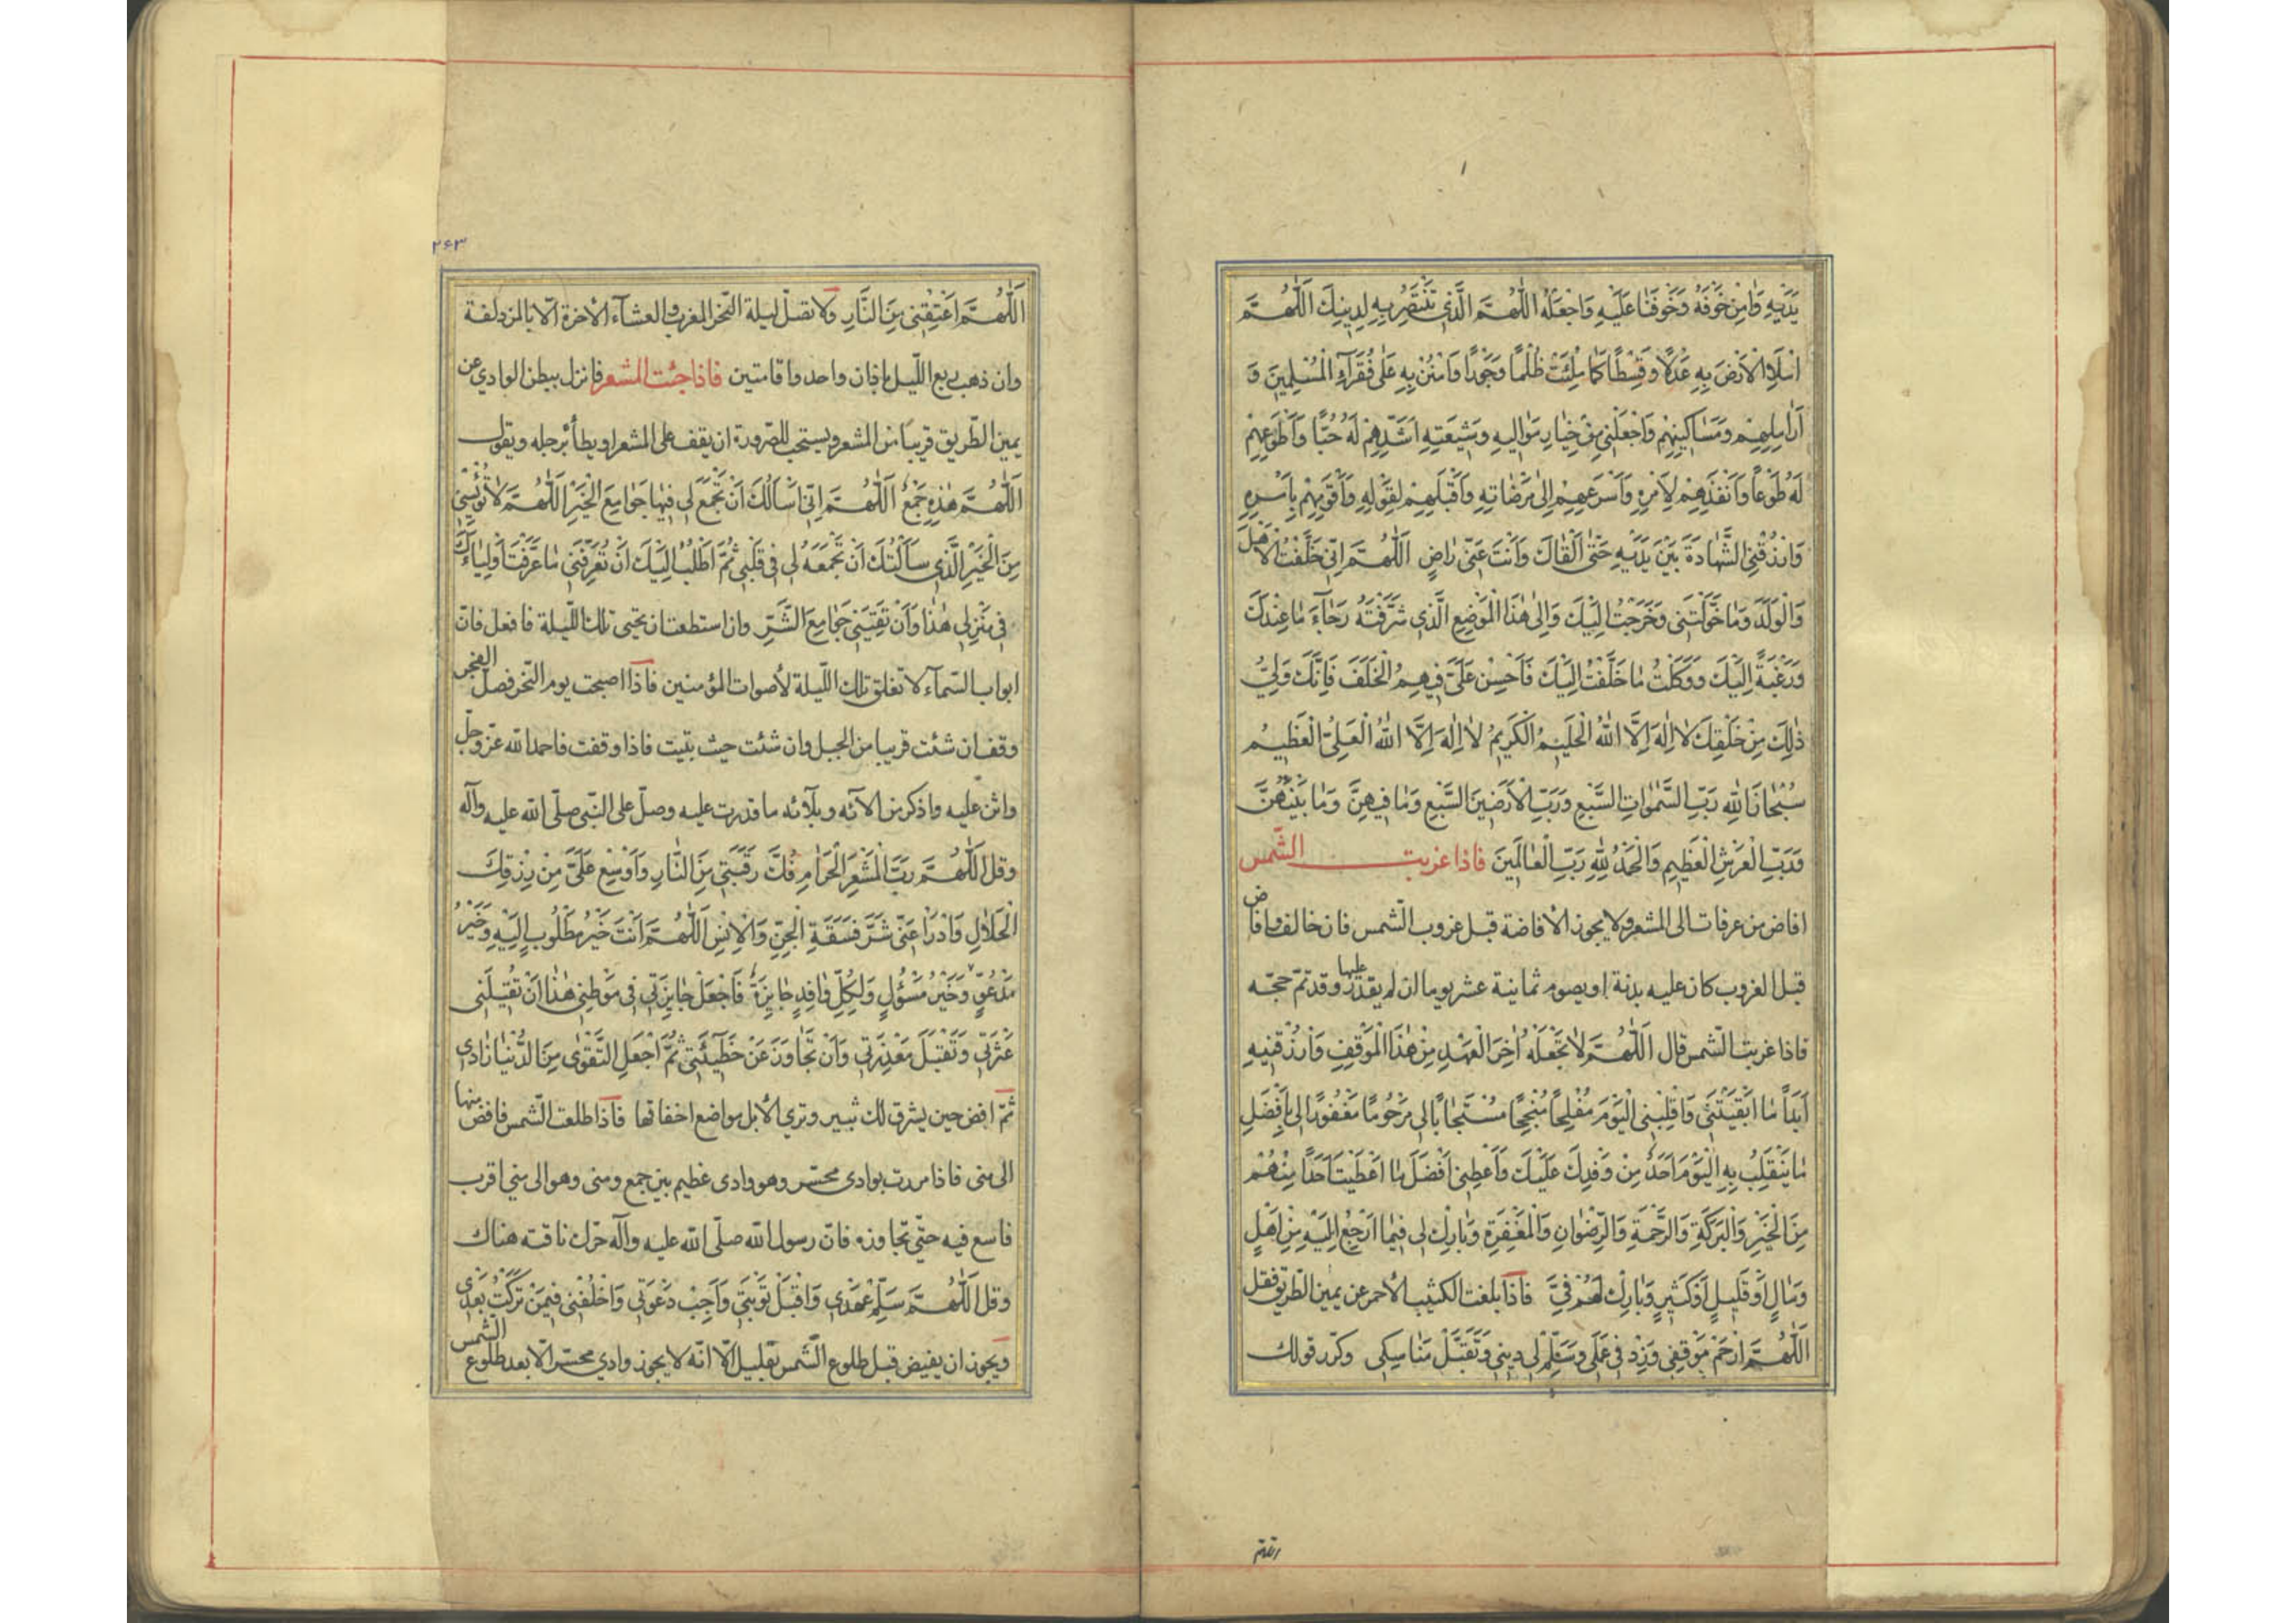 يَدَيْهِ وَامِنْ خَوْفَهُ وَخَوْفَنَا عَلَيْهِ وَاجْعَلْهُ اللّٰهُمَّ الَّذِي تَنْتَصِرُ بِهِ لِدِينِكَ اللّٰهُمَّ
امْلَأِ الْأَرْضَ بِهِ عَدْلًا وَقِسْطًا كَمَا مُلِئَتْ ظُلْمًا وَجَوْرًا وَامْنُنْ بِهِ عَلٰى فُقَرَآءِ الْمُسْلِمِينَ وَ
اَرَامِلِهِمْ وَمَسَاكِينِهِمْ وَاجْعَلْنِي مِنْ خِيَارِ مَوَالِيهِ وَشِيعَتِهِ اَشَدِّهِمْ لَهُ حُبًّا وَاَطْوَعِهِمْ
لَهُ طَوْعًا وَاَنْفَذِهِمْ لِاَمْرِهِ وَاَسْرَعِهِمْ اِلٰى مَرْضَاتِهِ وَاَقْبَلِهِمْ لِقَوْلِهِ وَاَقْوَمِهِمْ بِاَمْرِهِ
وَارْزُقْنِي الشَّهَادَةَ بَيْنَ يَدَيْهِ حَتّٰى اَلْقَاكَ وَاَنْتَ عَنِّي رَاضٍ اَللّٰهُمَّ اِنِّي خَلَّفْتُ الْاَهْلَ
وَالْوَلَدَ وَمَا خَوَّلْتَنِي وَخَرَجْتُ اِلَيْكَ وَاِلٰى هٰذَا الْمَوْضِعِ الَّذِي شَرَّفْتَهُ رَجَآءَ مَا عِنْدَكَ
وَرَغْبَةً اِلَيْكَ وَوَكَلْتُ مَا خَلَّفْتُ اِلَيْكَ فَاَحْسِنْ عَلَيَّ فِيهِمُ الْخَلَفَ فَاِنَّكَ وَلِيُّ
ذٰلِكَ مِنْ خَلْقِكَ لَا اِلٰهَ اِلَّا اللّٰهُ الْحَلِيمُ الْكَرِيمُ لَا اِلٰهَ اِلَّا اللّٰهُ الْعَلِيُّ الْعَظِيمُ
سُبْحَانَ اللّٰهِ رَبِّ السَّمٰوَاتِ السَّبْعِ وَرَبِّ الْاَرَضِينَ السَّبْعِ وَمَا فِيهِنَّ وَمَا بَيْنَهُنَّ
وَرَبِّ الْعَرْشِ الْعَظِيمِ وَالْحَمْدُ لِلّٰهِ رَبِّ الْعَالَمِينَ فاذا غربت الشّمس
افاض من عرفات الى المشعر ولا يجوز الأفاضة قبل غروب الشّمس فان خالف وافاض
قبل الغروب كان عليه بدنة او يصوم ثمانية عشر يوما ان لم يقدر عليها وقد تمّ حجّه
فاذا غربت الشّمس قال اَللّٰهُمَّ لَا تَجْعَلْهُ اٰخِرَ الْعَهْدِ مِنْ هٰذَا الْمَوْقِفِ وَارْزُقْنِيهِ
اَبَدًا مَا اَبْقَيْتَنِي وَاقْلِبْنِي الْيَوْمَ مُفْلِحًا مُنْجِحًا مُسْتَجَابًا لِي مَرْحُومًا مَغْفُورًا لِي بِاَفْضَلِ
مَا يَنْقَلِبُ بِهِ الْيَوْمَ اَحَدٌ مِنْ وَفْدِكَ عَلَيْكَ وَاَعْطِنِي اَفْضَلَ مَا اَعْطَيْتَ اَحَدًا مِنْهُمْ
مِنَ الْخَيْرِ وَالْبَرَكَةِ وَالرَّحْمَةِ وَالرِّضْوَانِ وَالْمَغْفِرَةِ وَبَارِكْ لِي فِيمَا اَرْجِعُ اِلَيْهِ مِنْ اَهْلٍ
وَمَالٍ اَوْ قَلِيلٍ اَوْ كَثِيرٍ وَبَارِكْ لَهُمْ فِيَّ فاذا بلغت الكثيب الأحمر عن يمين الطّريق فقل
اَللّٰهُمَّ ارْحَمْ مَوْقِفِي وَزِدْ فِي عَمَلِي وَسَلِّمْ لِي دِينِي وَتَقَبَّلْ مَنَاسِكِي وكرّر قولك
اللهم
۲۶۳
اَللّٰهُمَّ اَعْتِقْنِي مِنَ النَّارِ ولا تصلّ ليلة النّحر المغرب والعشآء الأخرة الّا بالمزدلفة
وان ذهب ربع اللّيل باذان واحد واقامتين فاذا جئت المشعر فانزل ببطن الوادي عن
يمين الطّريق قريبًا من المشعر ويستحب للصّرورة ان يقف على المشعر او يطأ برجله ويقول
اَللّٰهُمَّ هٰذِهِ جَمْعٌ اَللّٰهُمَّ اِنِّي اَسْأَلُكَ اَنْ تَجْمَعَ لِي فِيهَا جَوَامِعَ الْخَيْرِ اَللّٰهُمَّ لَا تُؤْيِسْنِي
مِنَ الْخَيْرِ الَّذِي سَاَلْتُكَ اَنْ تَجْمَعَهُ لِي فِي قَلْبِي ثُمَّ اَطْلُبُ اِلَيْكَ اَنْ تُعَرِّفَنِي مَا عَرَّفْتَ اَوْلِيَاءَكَ
فِي مَنْزِلِي هٰذَا وَاَنْ تَقِيَنِي جَوَامِعَ الشَّرِّ وان استطعت ان تحيى تلك اللّيلة فافعل فانّ
ابواب السّمآء لا تغلق تلك اللّيلة لأصوات المؤمنين فاذا اصبحت يوم النّحر فصلّ الفجر
وقف ان شئت قريبا من الجبل وان شئت حيث بتيت فاذا وقفت فاحمد الله عزّ وجلّ
واثن عليه واذكر من الآئه وبلآئه ما قدرت عليه وصلّ على النّبي صلّى الله عليه وآله
وقل اَللّٰهُمَّ رَبَّ الْمَشْعَرِ الْحَرَامِ فُكَّ رَقَبَتِي مِنَ النَّارِ وَاَوْسِعْ عَلَيَّ مِنْ رِزْقِكَ
الْحَلَالِ وَادْرَأْ عَنِّي شَرَّ فَسَقَةِ الْجِنِّ وَالْاِنْسِ اَللّٰهُمَّ اَنْتَ خَيْرُ مَطْلُوبٍ اِلَيْهِ وَخَيْرُ
مَدْعُوٍّ وَخَيْرُ مَسْؤُلٍ وَلِكُلِّ وَافِدٍ جَايِزَةٌ فَاجْعَلْ جَايِزَتِي فِي مَوْطِنِي هٰذَا اَنْ تُقِيلَنِي
عَثْرَتِي وَتَقْبَلَ مَعْذِرَتِي وَاَنْ تَجَاوَزَ عَنْ خَطِيئَتِي ثُمَّ اجْعَلِ التَّقْوٰى مِنَ الدُّنْيَا زَادِي
ثمّ افض حين يشرق لك ثبير وترى الأبل مواضع اخفافها فاذا طلعت الشّمس فافض منها
الى منى فاذا مررت بوادى محسّر وهو وادى عظيم بين جمع ومنى وهو الى منى اقرب
فاسع فيه حتّى تجاوزه فانّ رسول الله صلّى الله عليه وآله حرّك ناقته هناك
وقل اَللّٰهُمَّ سَلِّمْ عَهْدِي وَاقْبَلْ تَوْبَتِي وَاَجِبْ دَعْوَتِي وَاخْلُفْنِي فِيمَنْ تَرَكْتُ بَعْدِي
ويجوز ان يفيض قبل طلوع الشّمس بقليل الّا انّه لا يجوز وادي محسّر الّا بعد طلوع الشّمس